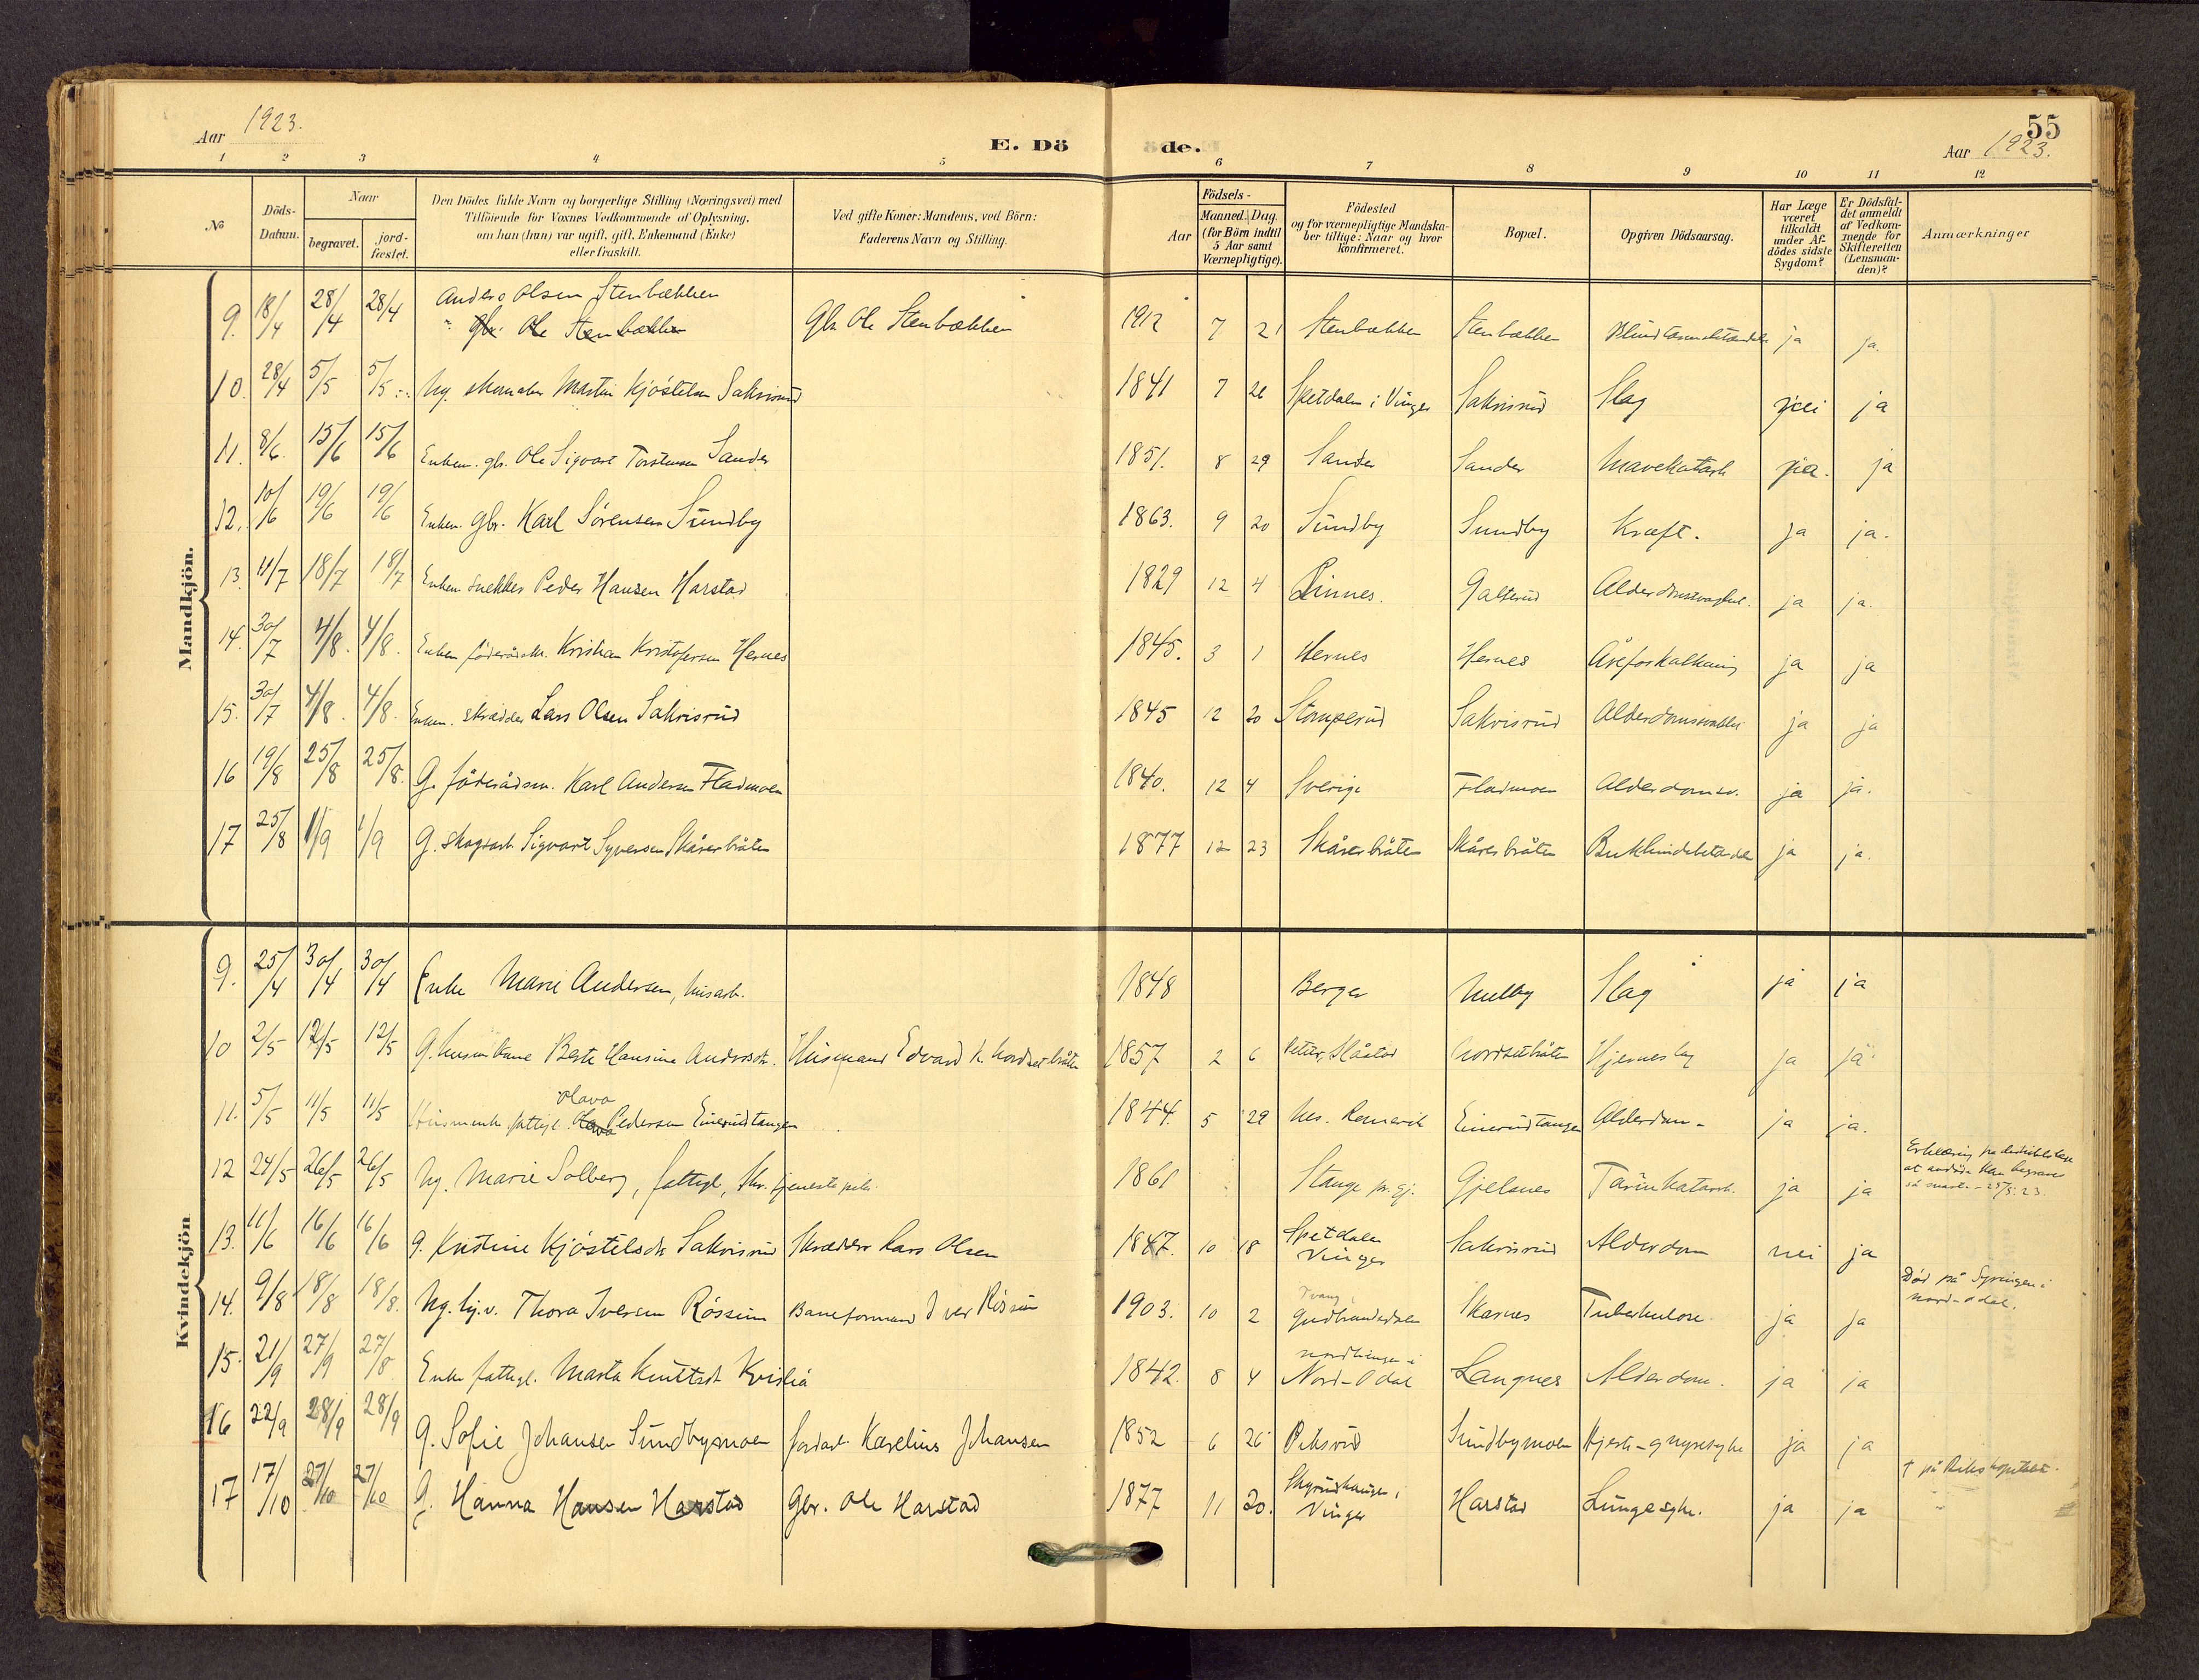 55
Aar 1923.
E. Döde.
Aar 1923.
1 2 3 4 5 6 7 8 9 10 11 12
No
Döds-Datum.
Naar
begravet.
jord-fæstet.
Den Dödes fulde Navn og borgerlige Stilling (Næringsvei) med
Tilföiende for Voxnes Vedkommende af Oplysning,
om han (hun) var ugift, gift, Enkemand (Enke)
eller fraskilt.
Ved gifte Koner: Mandens, ved Börn:
Faderens Navn og Stilling.
Födsels-
Aar
Maaned. Dag.
(for Börn indtil
5 Aar samt
Værnepligtige).
Födested
og for værnepligtige Mandska-
ber tillige: Naar og hvor
konfirmeret.
Bopæl.
Opgiven Dödsaarsag.
Har Læge
været
tilkaldt
under Af-
dödes sidste
Sygdom?
Er Dödsfal-
det anmeldt
af Vedkom-
mende for
Skifteretten
(Lensman-
den)?
Anmærkninger
Mandkjön.
9. 18/4 28/4 28/4 Anders Olsen Stenbækken
Gbr. Ole Stenbækken Gbr Ole Stenbækken 1912 7 21 Stenbækken Stenbækken ja ja.
10. 28/4 5/5 5/5 Ug. skomaker Martin Kjöstelsen Sakrisrud 1841 7 Spetdalen i Vinger Sakrisrud Slag nei ja
11. 8/6. 15/6 15/6 Enkem. gbr. Ole Sigvart Torstensen Sander 1851. 8 29 Sander Sander Mavekatarh ja. ja
12. 10/6 19/6 19/6 Enkem. gbr. Karl Sörensen Sundby 1863. 9 20 Sundby Sundby Kræft. ja ja.
13. 11/7 18/7 18/7 Enkem snekker Peder Hansen Harstad 1829 12 4 Linnes. Galterud ja ja.
14. 30/7 4/8. 4/8. Enkem föderådsm. Kristian Kristofersen Hernes 1845. 3 1 Hernes Hernes Åreforkalkning ja ja
15. 30/7 4/8. 4/8. Enkem. skrædder Lars Olsen Sakrisrud 1845 12 20 Stomperud Sakrisrud ja ja
16 19/8 25/8 25/8. G. föderådsm. Karl Andersen Fladmoen 1840. 12 4 Sverige Fladmoen Alderdomssv. ja ja.
17 25/8 1/9 1/9 G. skogsarb. Sigvart Syversen Skårerbråten 1877 12 23 Skårerbråten Skårerbråten ja ja.
Kvindekjön
9. 25/4 30/4 30/4 Enke Marie Andersen, husarb. 1848 Berger Slag ja ja
10 2/5 12/5 12/5 G. husmkone Berte Hansine Andersdt. Husmand Edvard H. Nordsetbråten 1857 2 6 Nordsetbråten ja ja.
11. 5/5 11/5 11/5 Husmenke fattigl. Olava Pedersen Einerudtangen 1844. 5 29 Nes. Romerik Einerudtangen Alderdom. ja ja.
12 24/5 26/5 26/5 Ug. Marie Solberg, fattigl, 1861 Stange Gjelsnes Tarmkatarrh. ja ja Erklæring fra distriktslæge
at avdöde kan begraves
så snart. - 25/5.23.
13. 11/6 16/6 16/6 G. Kristine Kjöstelsdt. Sakrisrud Skrædder Lars Olsen 1847. 10 18 Spetdalen
Vinger Sakrisrud Alderdom nei ja
14. 9/8 18/8 18/8. Ug. hj.v. Thora Iversen Rössum Baneformand Iver Rössum 1903. 10 2 Gudbrandsdalen Skarnes Tuberkulose ja ja Död på Syringen i
Nord-Odal.
15. 21/9 27/9 27/8 Enke fattigl. Marta Knutsdt Kvislia 1842. 8 4 Nordhungen i
Nord-Odal Langnes Alderdom. ja ja
16 22/9 28/9 28/9 G. Sofie Johansen Sundbymoen Jordarb. Karelius Johansen 1852 6 26 Sundbymoen Hjerte- nyresyke ja ja
17 17/10 27/10 27/10 G. Hanna Hansen Harstad Gbr. Ole Harstad 1877 11 20. Vinger Harstad Lungesyke. ja ja † på Rikshospitalet.